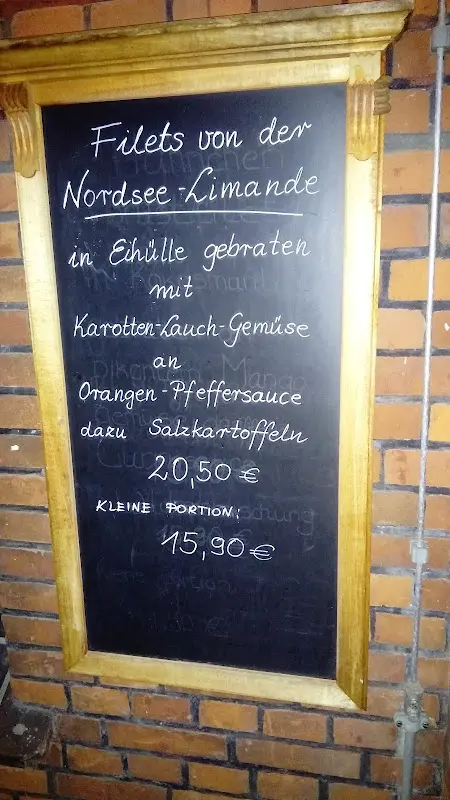 Filets von der
Nordsee-Limande
in Eihülle gebraten
mit
Karotten-Lauch-Gemüse
an
Orangen-Pfeffersauce
dazu Salzkartoffeln
20,50 €
KLEINE PORTION:
15,90 €